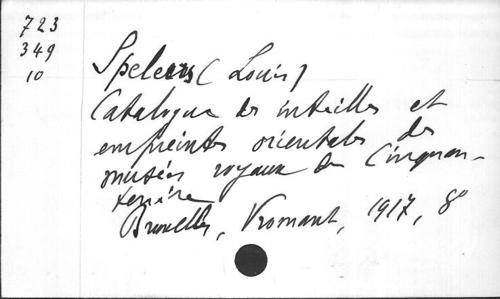 723
349
10
Speleers (Louis)
Catalogue des intailles et
empreintes orientales des
musées royaux du Cinquan-
tenaire
Bruxelles, Vromant, 1917, 8°